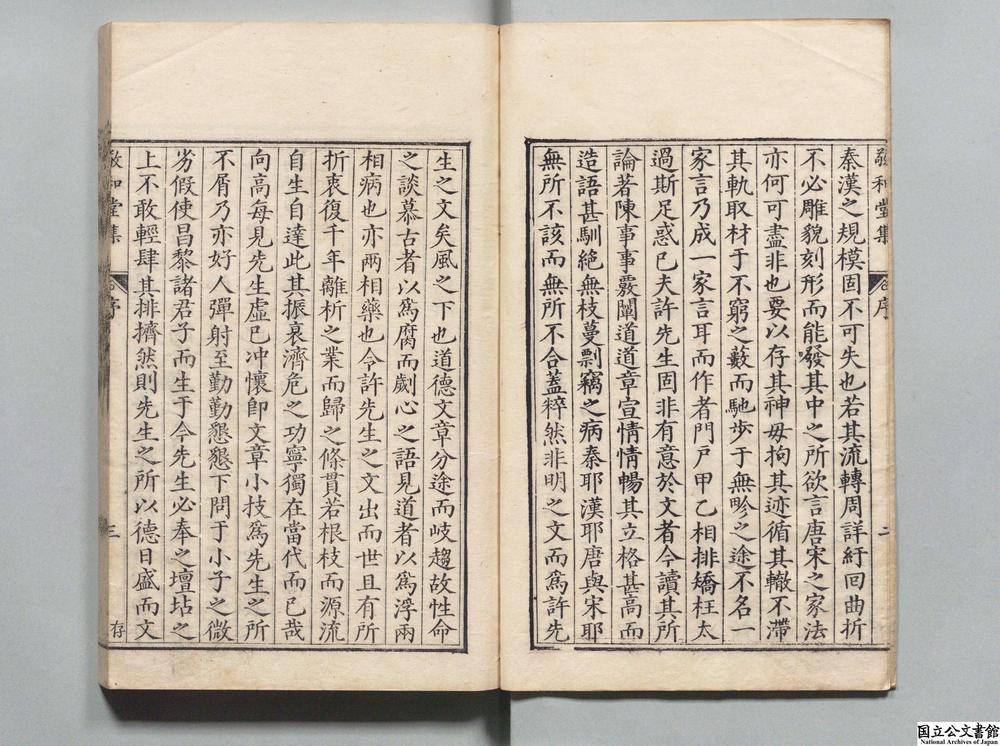 敬和堂集
序
二
秦漢之規模固不可失也若其流轉周詳紆回曲折
不必雕貌刻形而能發其中之所欲言唐宋之家法
亦何可盡非也要以存其神毋拘其迹循其轍不滯
其軌取材于不窮之藪而馳步于無畛之途不名一
家言乃成一家言耳而作者門戸甲乙相排矯枉太
過斯足惑已夫許先生固非有意於文者今讀其所
論著陳事事覈闡道道章宣情情暢其立格甚高而
造語甚馴絕無枝蔓剽竊之病秦耶漢耶唐與宋耶
無所不該而無所不合蓋粹然非明之文而為許先
生之文矣風之下也道德文章分途而岐趨故性命
之談慕古者以為腐而劌心之語見道者以為浮兩
相病也亦兩相藥也今許先生之文出而世且有所
折衷復千年離析之業而歸之條貫若根枝而源流
自生自達此其振裒濟危之功寧獨在當代而已哉
向高每見先生虛已冲懷卽文章小技為先生之所
不屑乃亦好人彈射至勤勤懇懇下問于小子之微
劣假使昌黎諸君子而生于今先生必奉之壇坫之
上不敢輕肆其排擠然則先生之所以德日盛而文
敬和堂集
序
三
存
国立公文書館
National Archives of Japan